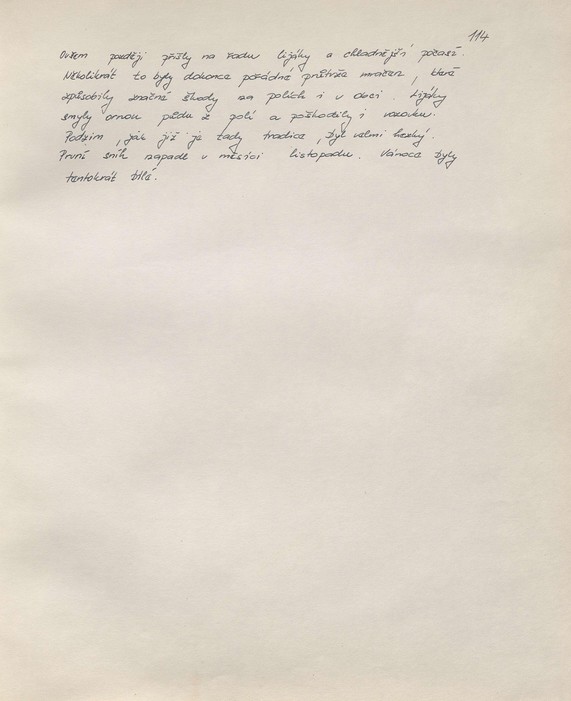 114
Ovšem později přišly na řadu lijáky a chladnější počasí.
Několikrát to byly dokonce pořádné průtrže mračen, které
způsobily značné škody na polích i v obci. Lijáky
smyly ornou půdu z polí a poškodily i vozovku.
Podzim, jak již je tady tradice, byl velmi hezký.
První sníh napadl v měsíci listopadu. Vánoce byly
tentokrát bílé.